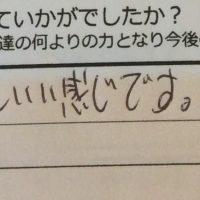 ていかがでしたか？
達の何よりの力となり今後
いい感じです。